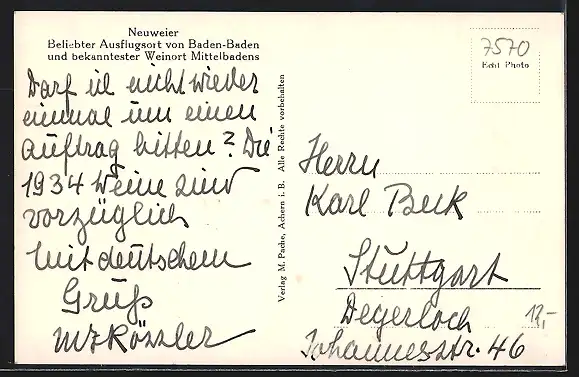 Neuweier
Beliebter Ausflugsort von Baden-Baden
und bekanntester Weinort Mittelbadens
Darf ich nicht wieder
einmal um einen
Auftrag bitten? Die
1934 Weine sind
vorzüglich
Mit deutschem
Gruß
Kössler
Verlag M. Pache, Achern i. B. Alle Rechte vorbehalten
7570
Echt Photo
Herrn
Karl Beck
Stuttgart
Degerloch
Johannesstr. 46
12,-